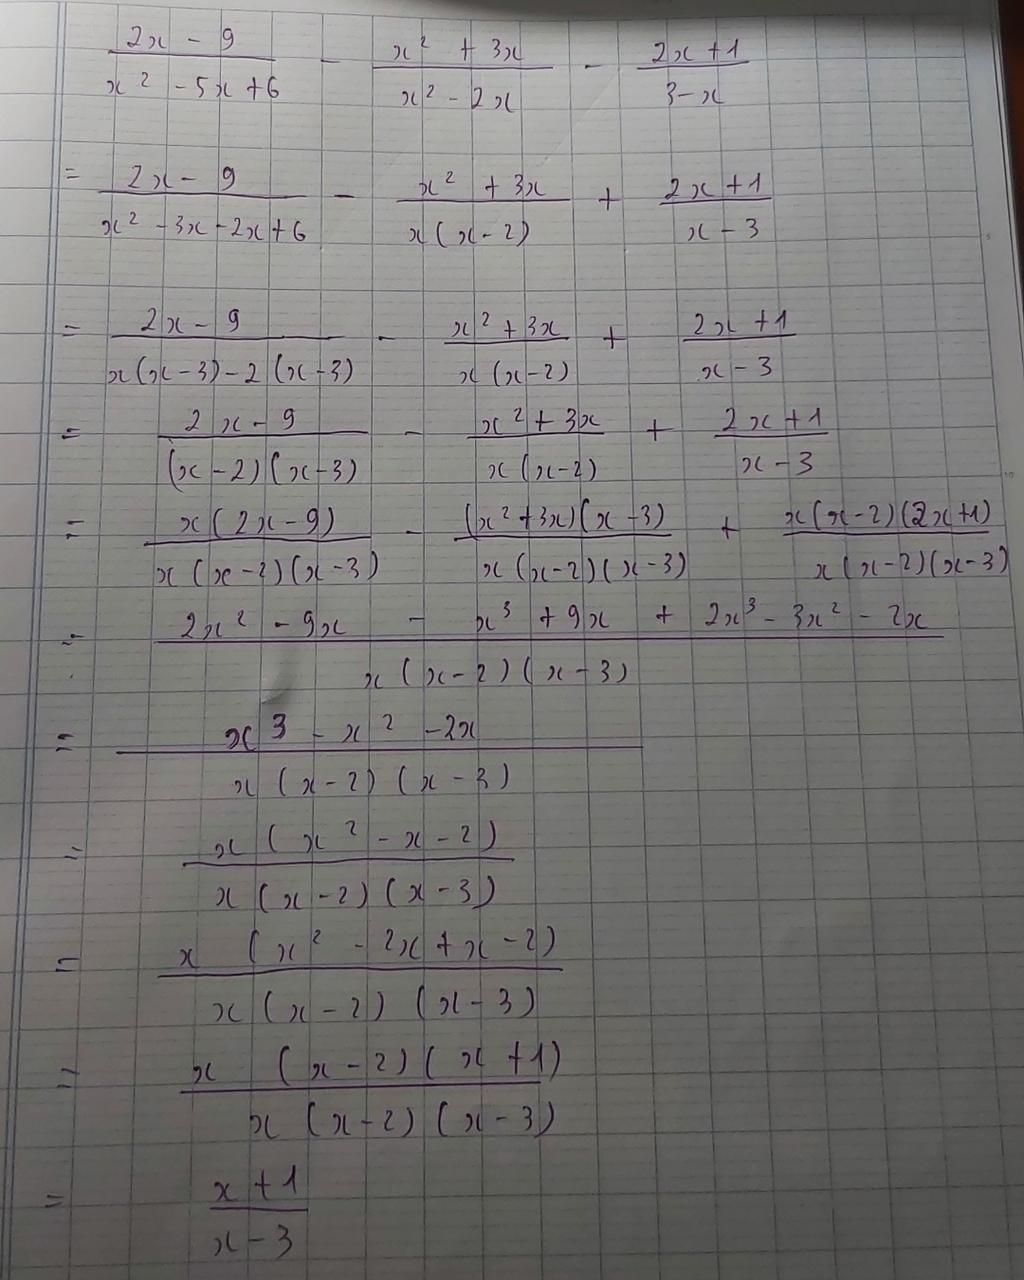 2x - 9 / x² - 5x + 6 - x² + 3x / x² - 2x - 2x + 1 / 3 - x
= 2x - 9 / x² - 3x - 2x + 6 - x² + 3x / x(x - 2) + 2x + 1 / x - 3
= 2x - 9 / x(x - 3) - 2(x - 3) - x² + 3x / x(x - 2) + 2x + 1 / x - 3
= 2x - 9 / (x - 2)(x - 3) - x² + 3x / x(x - 2) + 2x + 1 / x - 3
= x(2x - 9) / x(x - 2)(x - 3) - (x² + 3x)(x - 3) / x(x - 2)(x - 3) + x(x - 2)(2x + 1) / x(x - 2)(x - 3)
= 2x² - 9x - x³ + 9x + 2x³ - 3x² - 2x / x(x - 2)(x - 3)
= x³ - x² - 2x / x(x - 2)(x - 3)
= x(x² - x - 2) / x(x - 2)(x - 3)
= x(x² - 2x + x - 2) / x(x - 2)(x - 3)
= x(x - 2)(x + 1) / x(x - 2)(x - 3)
= x + 1 / x - 3